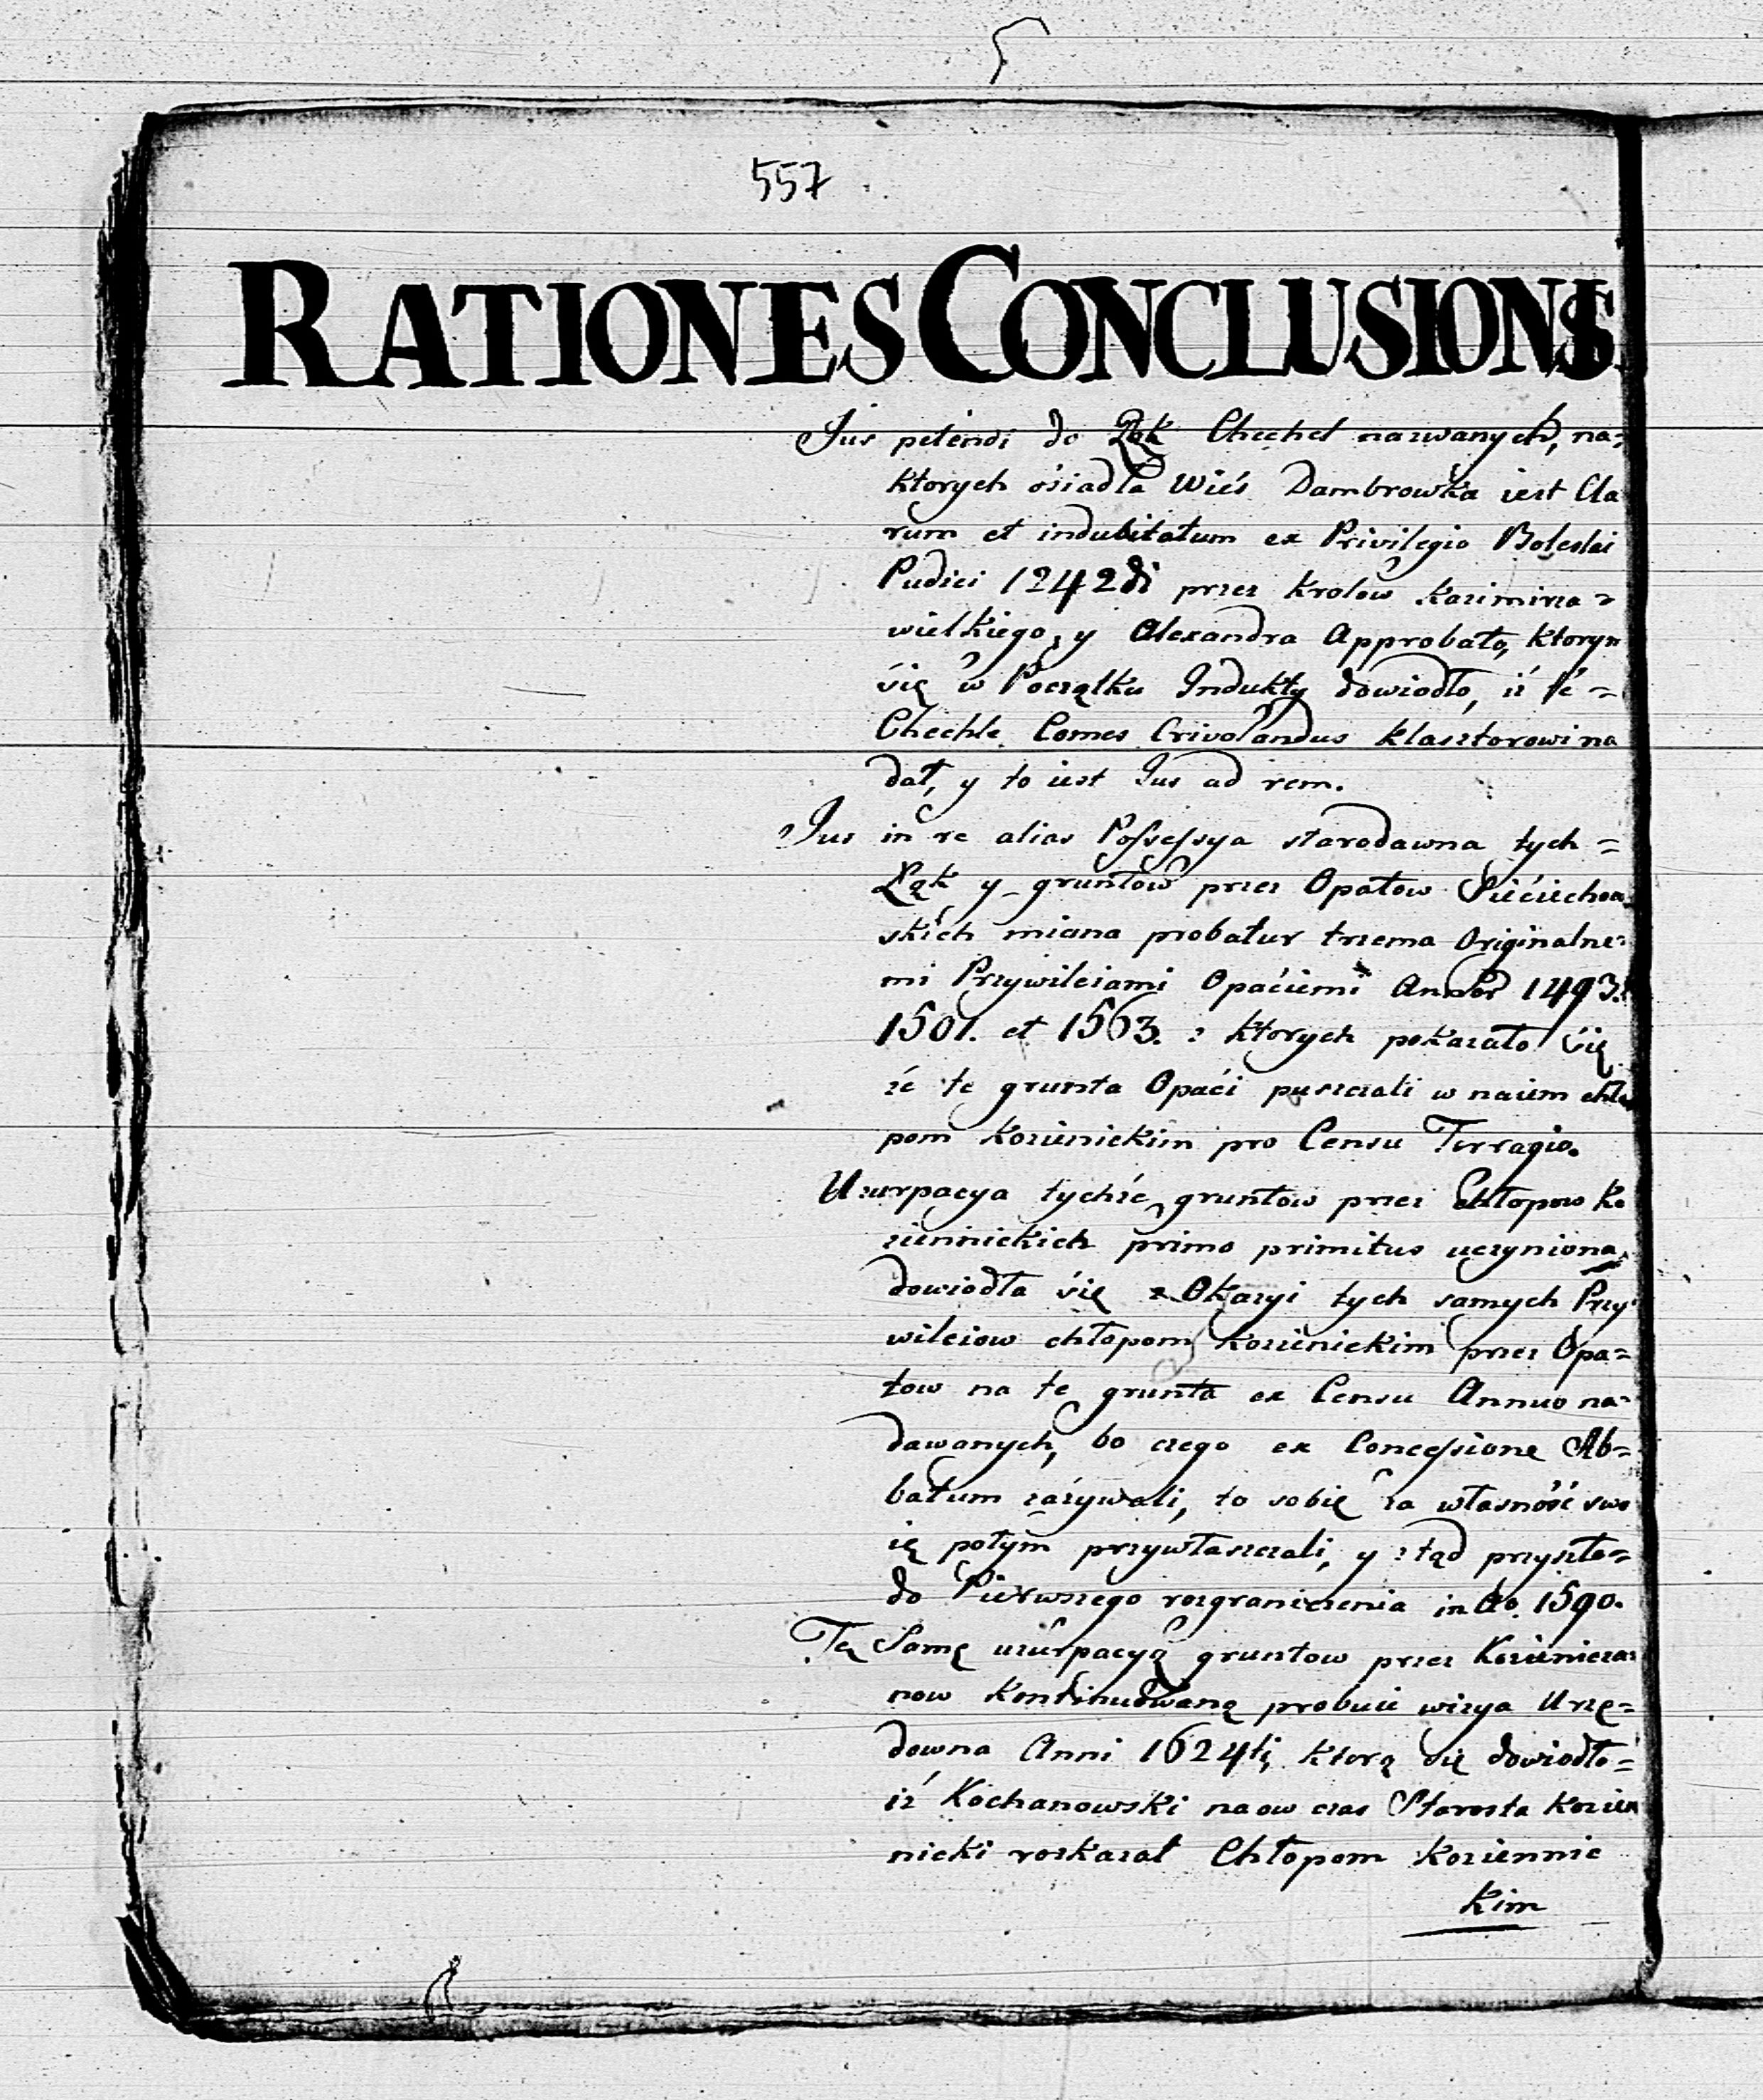 557
RATIONES CONCLUSIONIS
Jus petendi do Łąk Chechel nazwanych, na=
ktorych ośiadła Wieś Dambrowka iest Cla
rum et indubitatum ex Privilegio Boleslai
Pudici 1242di przez Krolow Kazimirza =
wielkiego, y Alexandra Approbato, ktorym
się w Początku Indukty dowiodło, iż te =
Chechle Comes Crivolandus Klasztorowi na
dał, y to iest Jus ad rem.
Jus in re alias Possessya starodawna tych =
Łąk y gruntow przez Opatow Siećiechow
skich miana probatur trzema Originalne=
mi Przywileiami Opaćiemi Annor 1493.
1501. et 1563. z ktorych pokazało się
że te grunta Opaći puszczali w naiem chło
pom Kozienickim pro Censu Terragio.
Uzurpacya tychże gruntow przez Chłopow Ko
ziennickich primo primitus uczyniona,
dowiodła się z Okazyi tych samych Przy=
wileiow chłopom Kozienickim przez Opa=
tow na te grunta ex Censu Annuo na=
dawanych, bo czego ex Concessione Ab=
batum zażywali, to sobię za własność swo
ię potym przywłaszczali, y ztąd przyszło=
do Pierwszego rozgraniczenia in Ao. 1590.
Tę Samę uzurpacyą gruntow przez Kozieniczá=
now Kontinuowaną probuie wizya Urzę=
downa Anni 1624ti, ktorą się dowiodło=
iż Kochanowski na ow czas Starosta Kozien
nicki rozkazał Chłopom Koziennic
kim